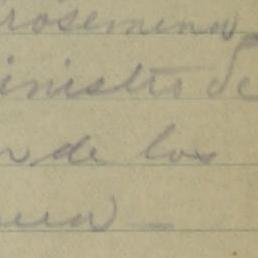 rosemena
inistro de
n de los